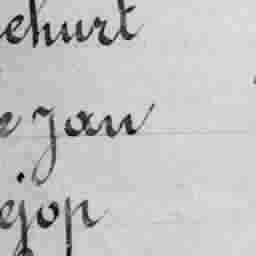 ehurt
e Jan
ejop